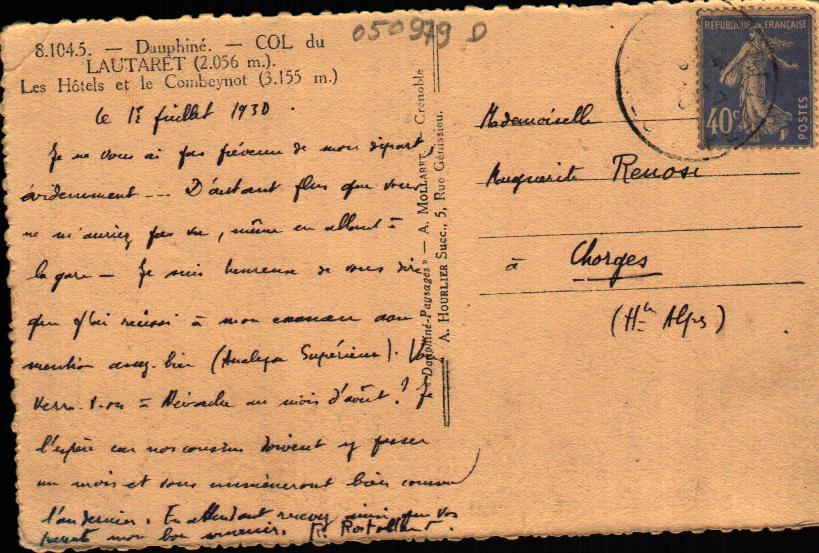 050979 D
8.1045. — Dauphiné. — COL du
LAUTARET (2.056 m.).
Les Hôtels et le Combeynot (3.155 m.)
le 1er juillet 1930.
Je ne vous ai pas prévenue de mon départ,
évidemment... D'autant plus que vous
ne m'auriez pas vu, même en allant à
la gare — Je suis heureuse de vous dire
que j'ai réussi à mon examen avec
mention assez bien (Analyse Supérieure).
verra-t-on à au mois d'août? Je
l'espère car nos cousins doivent y passer
un mois et vous emmèneront bien comme
l'an dernier. En attendant recevez ainsi que vos
parents mon bon souvenir. R.
"Dauphiné-Paysages" — A. MOLLARET — Grenoble
A. HOURLIER Succ., 5, Rue Génissieu.
RÉPUBLIQUE FRANÇAISE
40c
POSTES
Mademoiselle
Marguerite
à Chorges
(Htes Alpes)